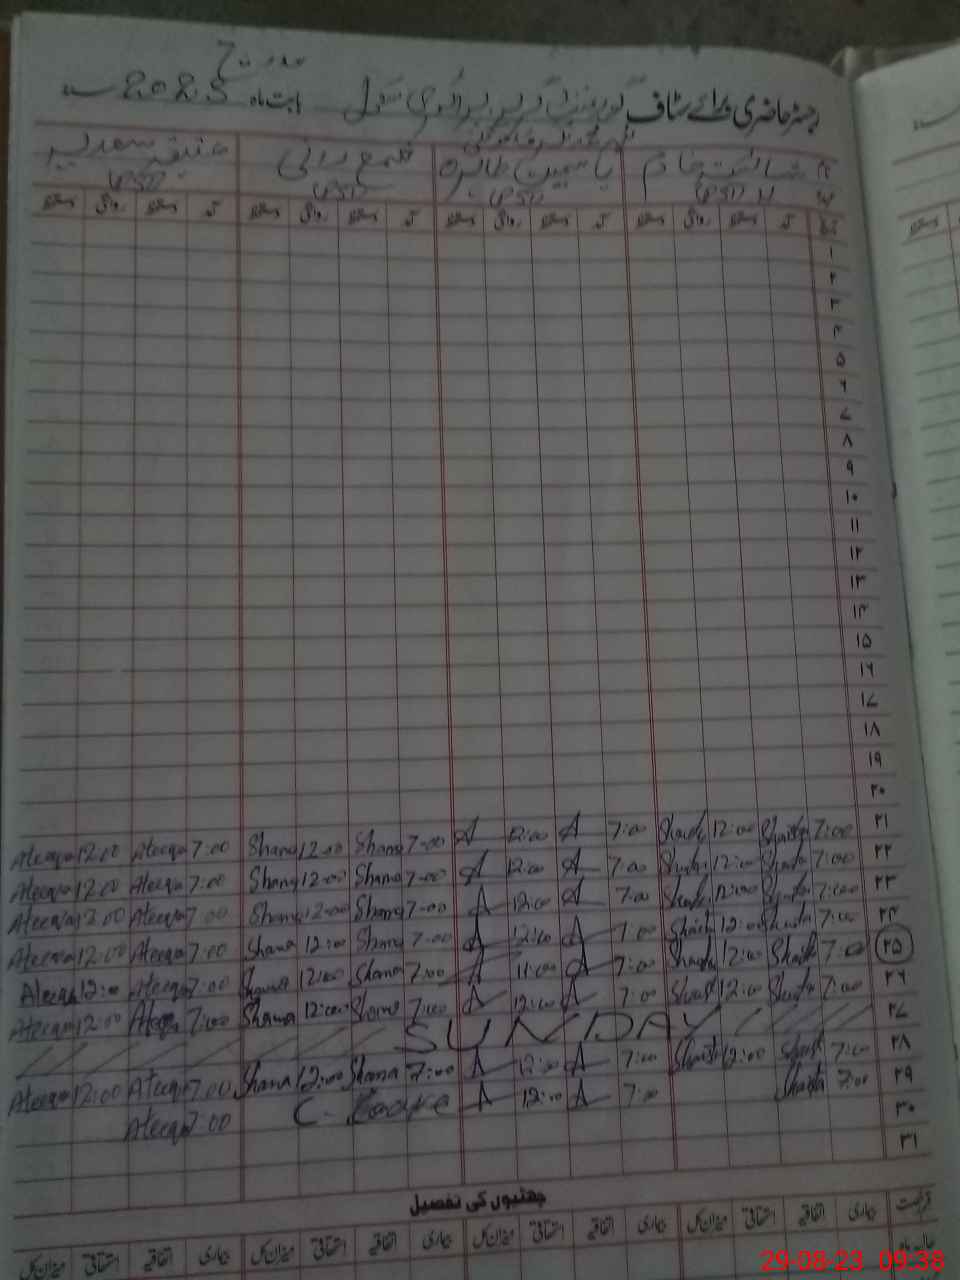 رجسٹر حاضری برائے سٹاف گورنمنٹ گرلز پرائمری سکول بابت ماہ 2023 سنہ
شائستہ خانم یاسمین طاہرہ شمع رانی عتیقہ سعدیہ
(PST) (PST) (PST) (PST)
دستخط روانگی دستخط آمد دستخط روانگی دستخط آمد دستخط روانگی دستخط آمد دستخط روانگی دستخط آمد تاریخ
۱
۲
۳
۴
۵
۶
۷
۸
۹
۱۰
۱۱
۱۲
۱۳
۱۴
۱۵
۱۶
۱۷
۱۸
۱۹
۲۰
Ateeqa 12:00 Ateeqa 7:00 Shama 12:00 Shama 7:00 A 12:00 A 7:00 Shaista 12:00 Shaista 7:00 ۲۱
Ateeqa 12:00 Ateeqa 7:00 Shama 12:00 Shama 7:00 A 12:00 A 7:00 Shaista 12:00 Shaista 7:00 ۲۲
Ateeqa 12:00 Ateeqa 7:00 Shama 12:00 Shama 7:00 A 12:00 A 7:00 Shaista 12:00 Shaista 7:00 ۲۳
Ateeqa 12:00 Ateeqa 7:00 Shama 12:00 Shama 7:00 A 12:00 A 7:00 Shaista 12:00 Shaista 7:00 ۲۴
Ateeqa 12:00 Ateeqa 7:00 Shama 12:00 Shama 7:00 A 11:00 A 7:00 Shaista 12:00 Shaista 7:00 ۲۵
Ateeqa 12:00 Ateeqa 7:00 Shama 12:00 Shama 7:00 A 12:00 A 7:00 Shaista 12:00 Shaista 7:00 ۲۶
SUNDAY ۲۷
Ateeqa 12:00 Ateeqa 7:00 Shama 12:00 Shama 7:00 A 12:00 A 7:00 Shaista 12:00 Shaista 7:00 ۲۸
Ateeqa 7:00 C- Leave A 12:00 A 7:00 Shaista 7:00 ۲۹
۳۰
۳۱
چھٹیوں کی تفصیل
میزان کل استحقاقی اتفاقیہ بیماری میزان کل استحقاقی اتفاقیہ بیماری میزان کل استحقاقی اتفاقیہ بیماری میزان کل استحقاقی اتفاقیہ بیماری
29-08-23 09:38